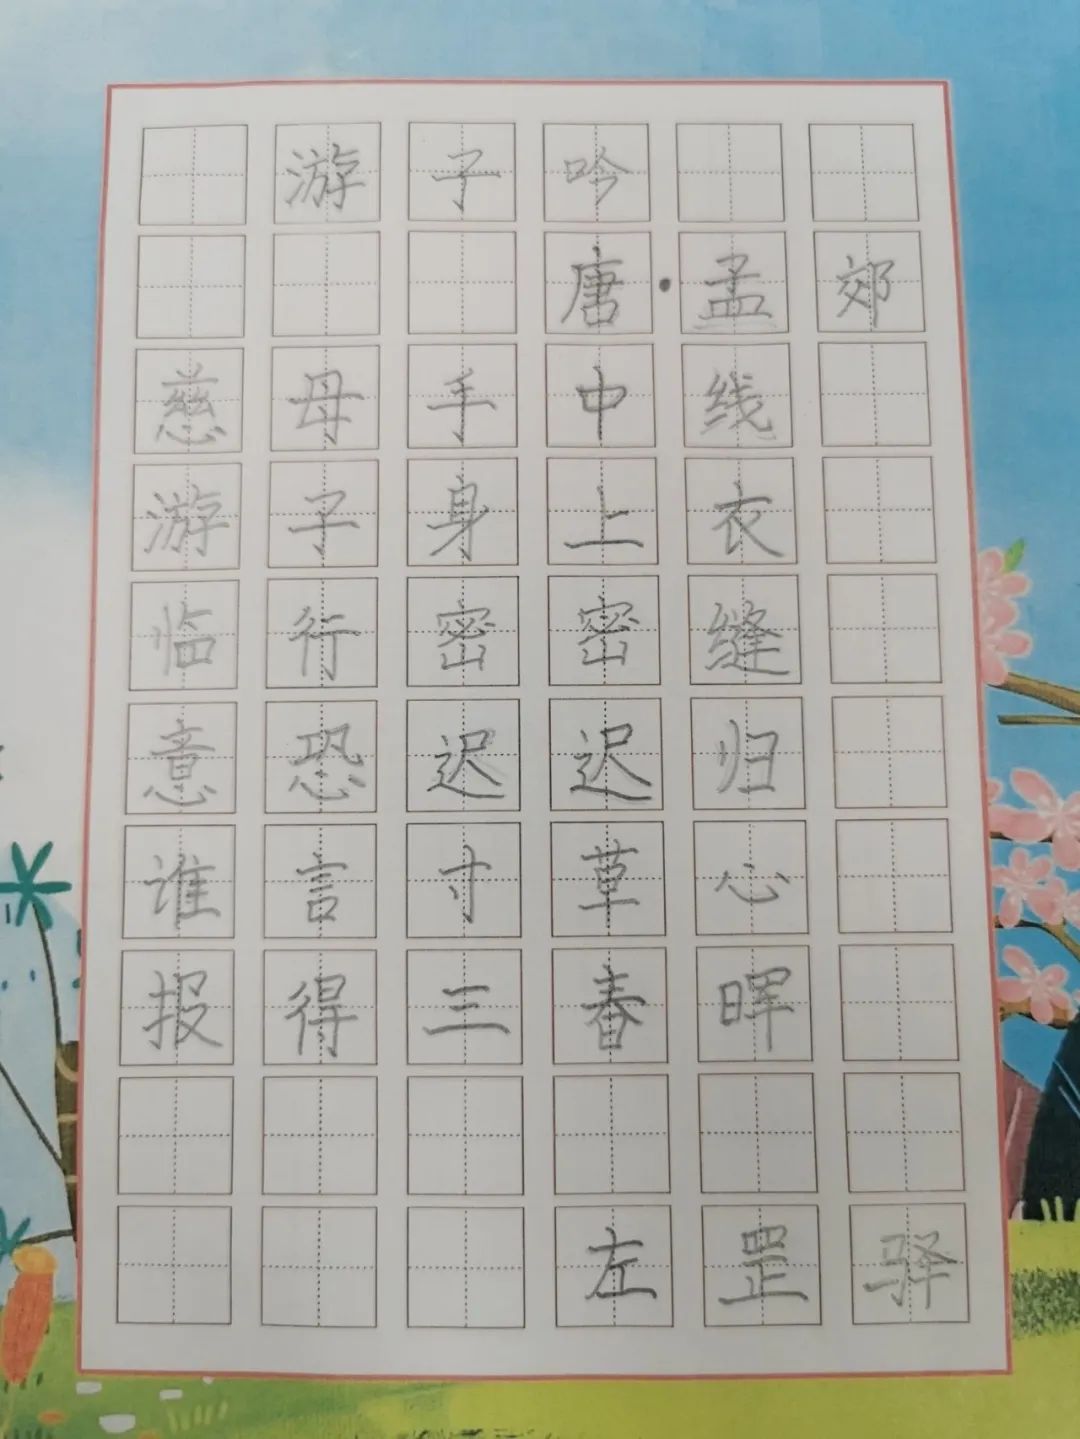 游子吟
唐·孟郊
慈母手中线
游子身上衣
临行密密缝
意恐迟迟归
谁言寸草心
报得三春晖
左罡驿